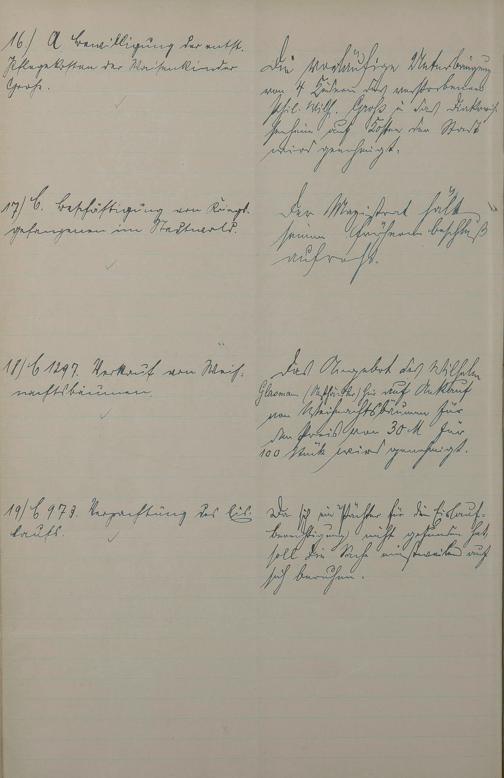 16) A Bewilligung der entst.
Pflegekosten der Waisenkinder
Groß.
Die vorläufige Unterbringung
von 4 Kindern des verstorbenen
Phil. Wilh. Groß in das Diakonis-
senheim auf Kosten der Stadt
wird genehmigt.
17) C. Beschäftigung von Kriegs-
gefangenen im Stadtwald.
Der Magistrat hält
seinen früheren Beschluß
aufrecht.
18) C 1297. Verkauf von Weih-
nachtsbäumen
Das Angebot des Wilhelm
hier auf Ankauf
von Weihnachtsbäumen für
den Preis von 30 M für
100 Stück wird genehmigt.
19) C 973. Verpachtung des Eis-
laufs.
Da sich ein Pächter für die Eislauf-
berechtigung nicht gefunden hat,
soll die Sache einstweilen auf
sich beruhen.